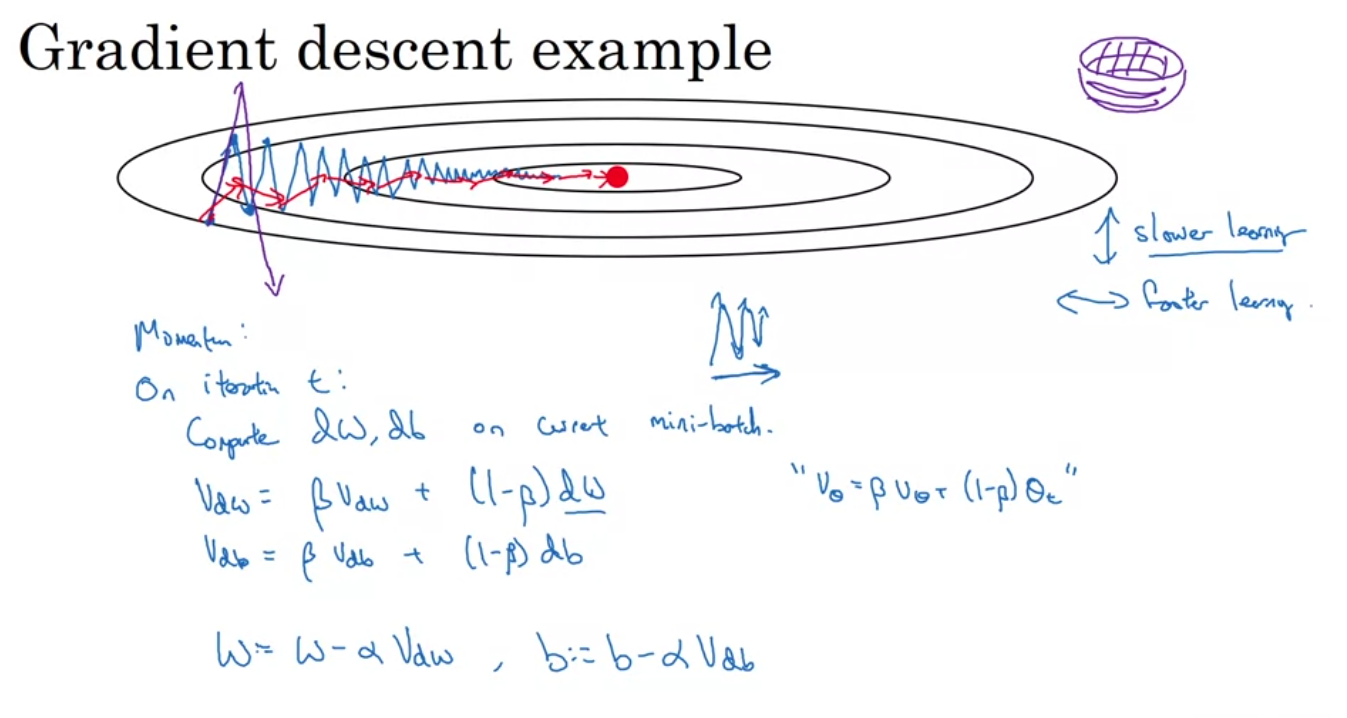 Gradient descent example
↕ slower learning
↔ faster learning.
Momentum:
On iteration t:
Compute dW, db on current mini-batch.
V_dw = β V_dw + (1-β) dW
"V_θ = β V_θ + (1-β) θ_t"
V_db = β V_db + (1-β) db
W := W - α V_dw , b := b - α V_db